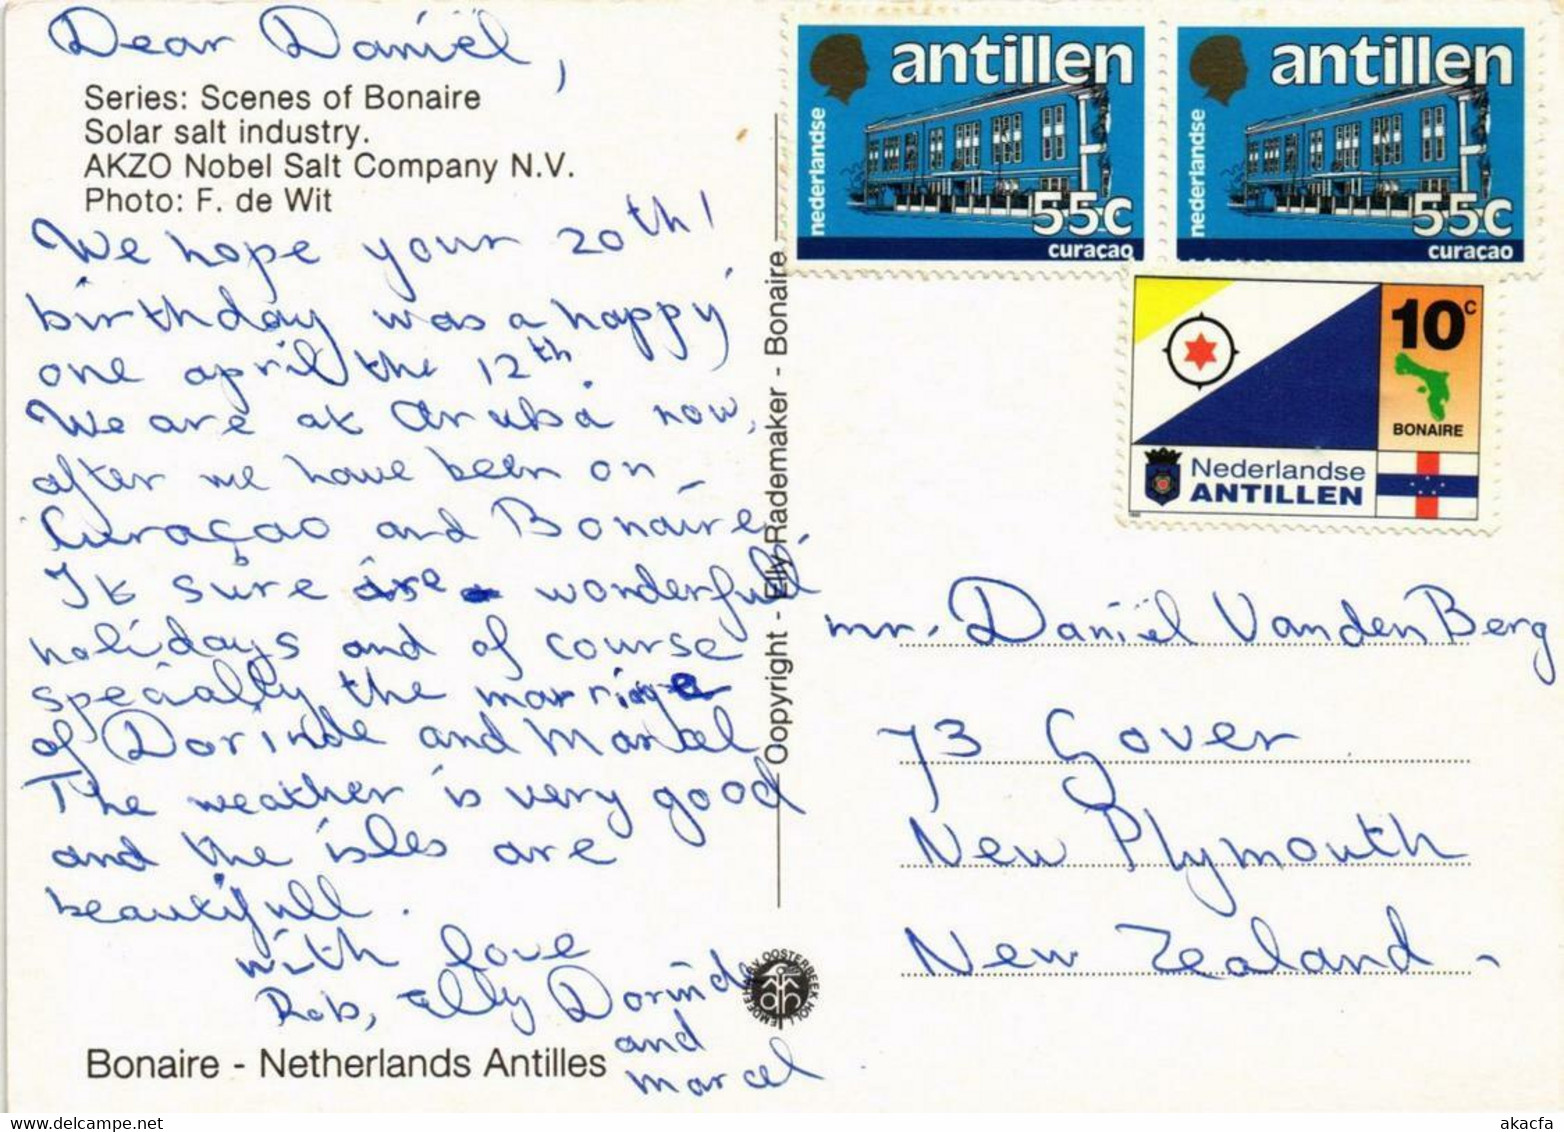 Dear Daniël,
Series: Scenes of Bonaire
Solar salt industry.
AKZO Nobel Salt Company N.V.
Photo: F. de Wit
We hope your 20th
birthday was a happy
one april the 12th.
We are at Aruba now,
after we have been on
Curaçao and Bonaire.
It's sure are wonderfull
holidays and of course
specially the marrige
of Dorinde and Marcel
The weather is very good
and the isles are
beautifull.
with love
Rob, Elly Dorinde
and
Marcel
Bonaire - Netherlands Antilles
Copyright - Elly Rademaker - Bonaire
nederlandse
antillen
55c
curaçao
nederlandse
antillen
55c
curaçao
10c
BONAIRE
Nederlandse
ANTILLEN
mr. Daniël VandenBerg
73 Gover
New Plymouth
New Zealand
OOSTERBEEK HOLL
delcampe.net
akacfa